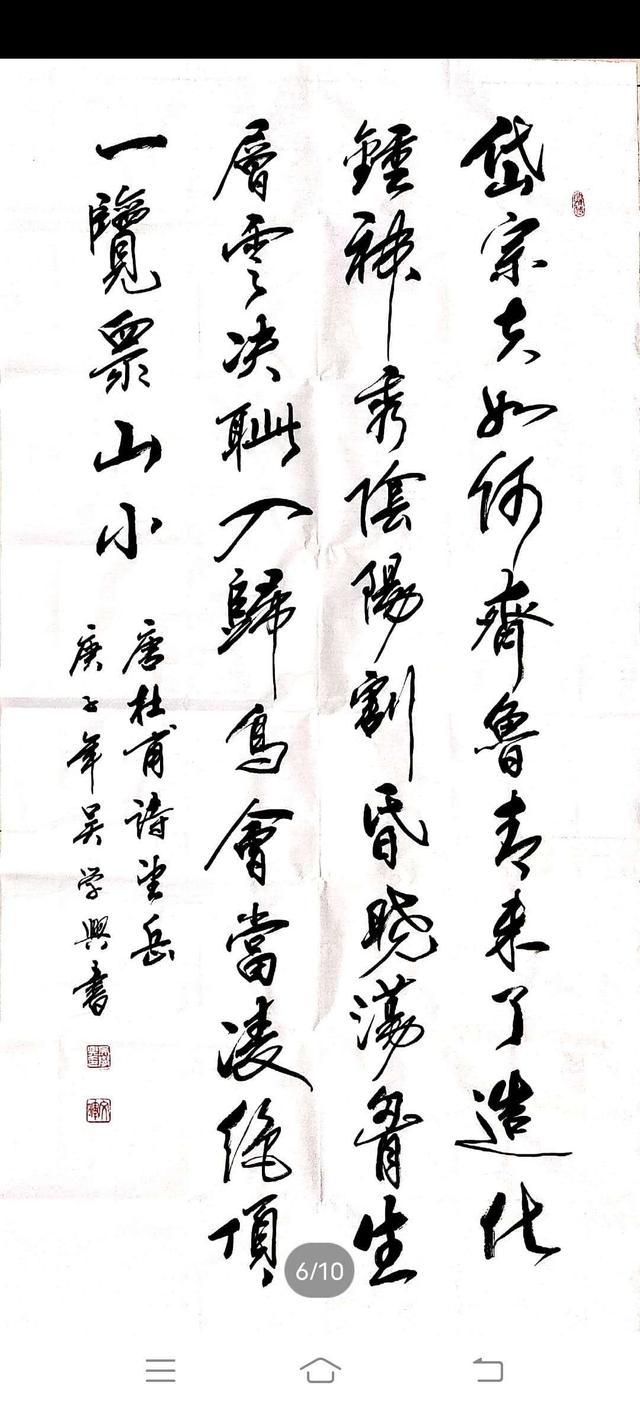 岱宗夫如何齊魯青来了造化
鍾神秀陰陽割昏曉荡胷生
層雲决眦入歸鳥會當凌絶頂
一覽衆山小
唐杜甫詩望岳
庚子年吴学興書
6/10